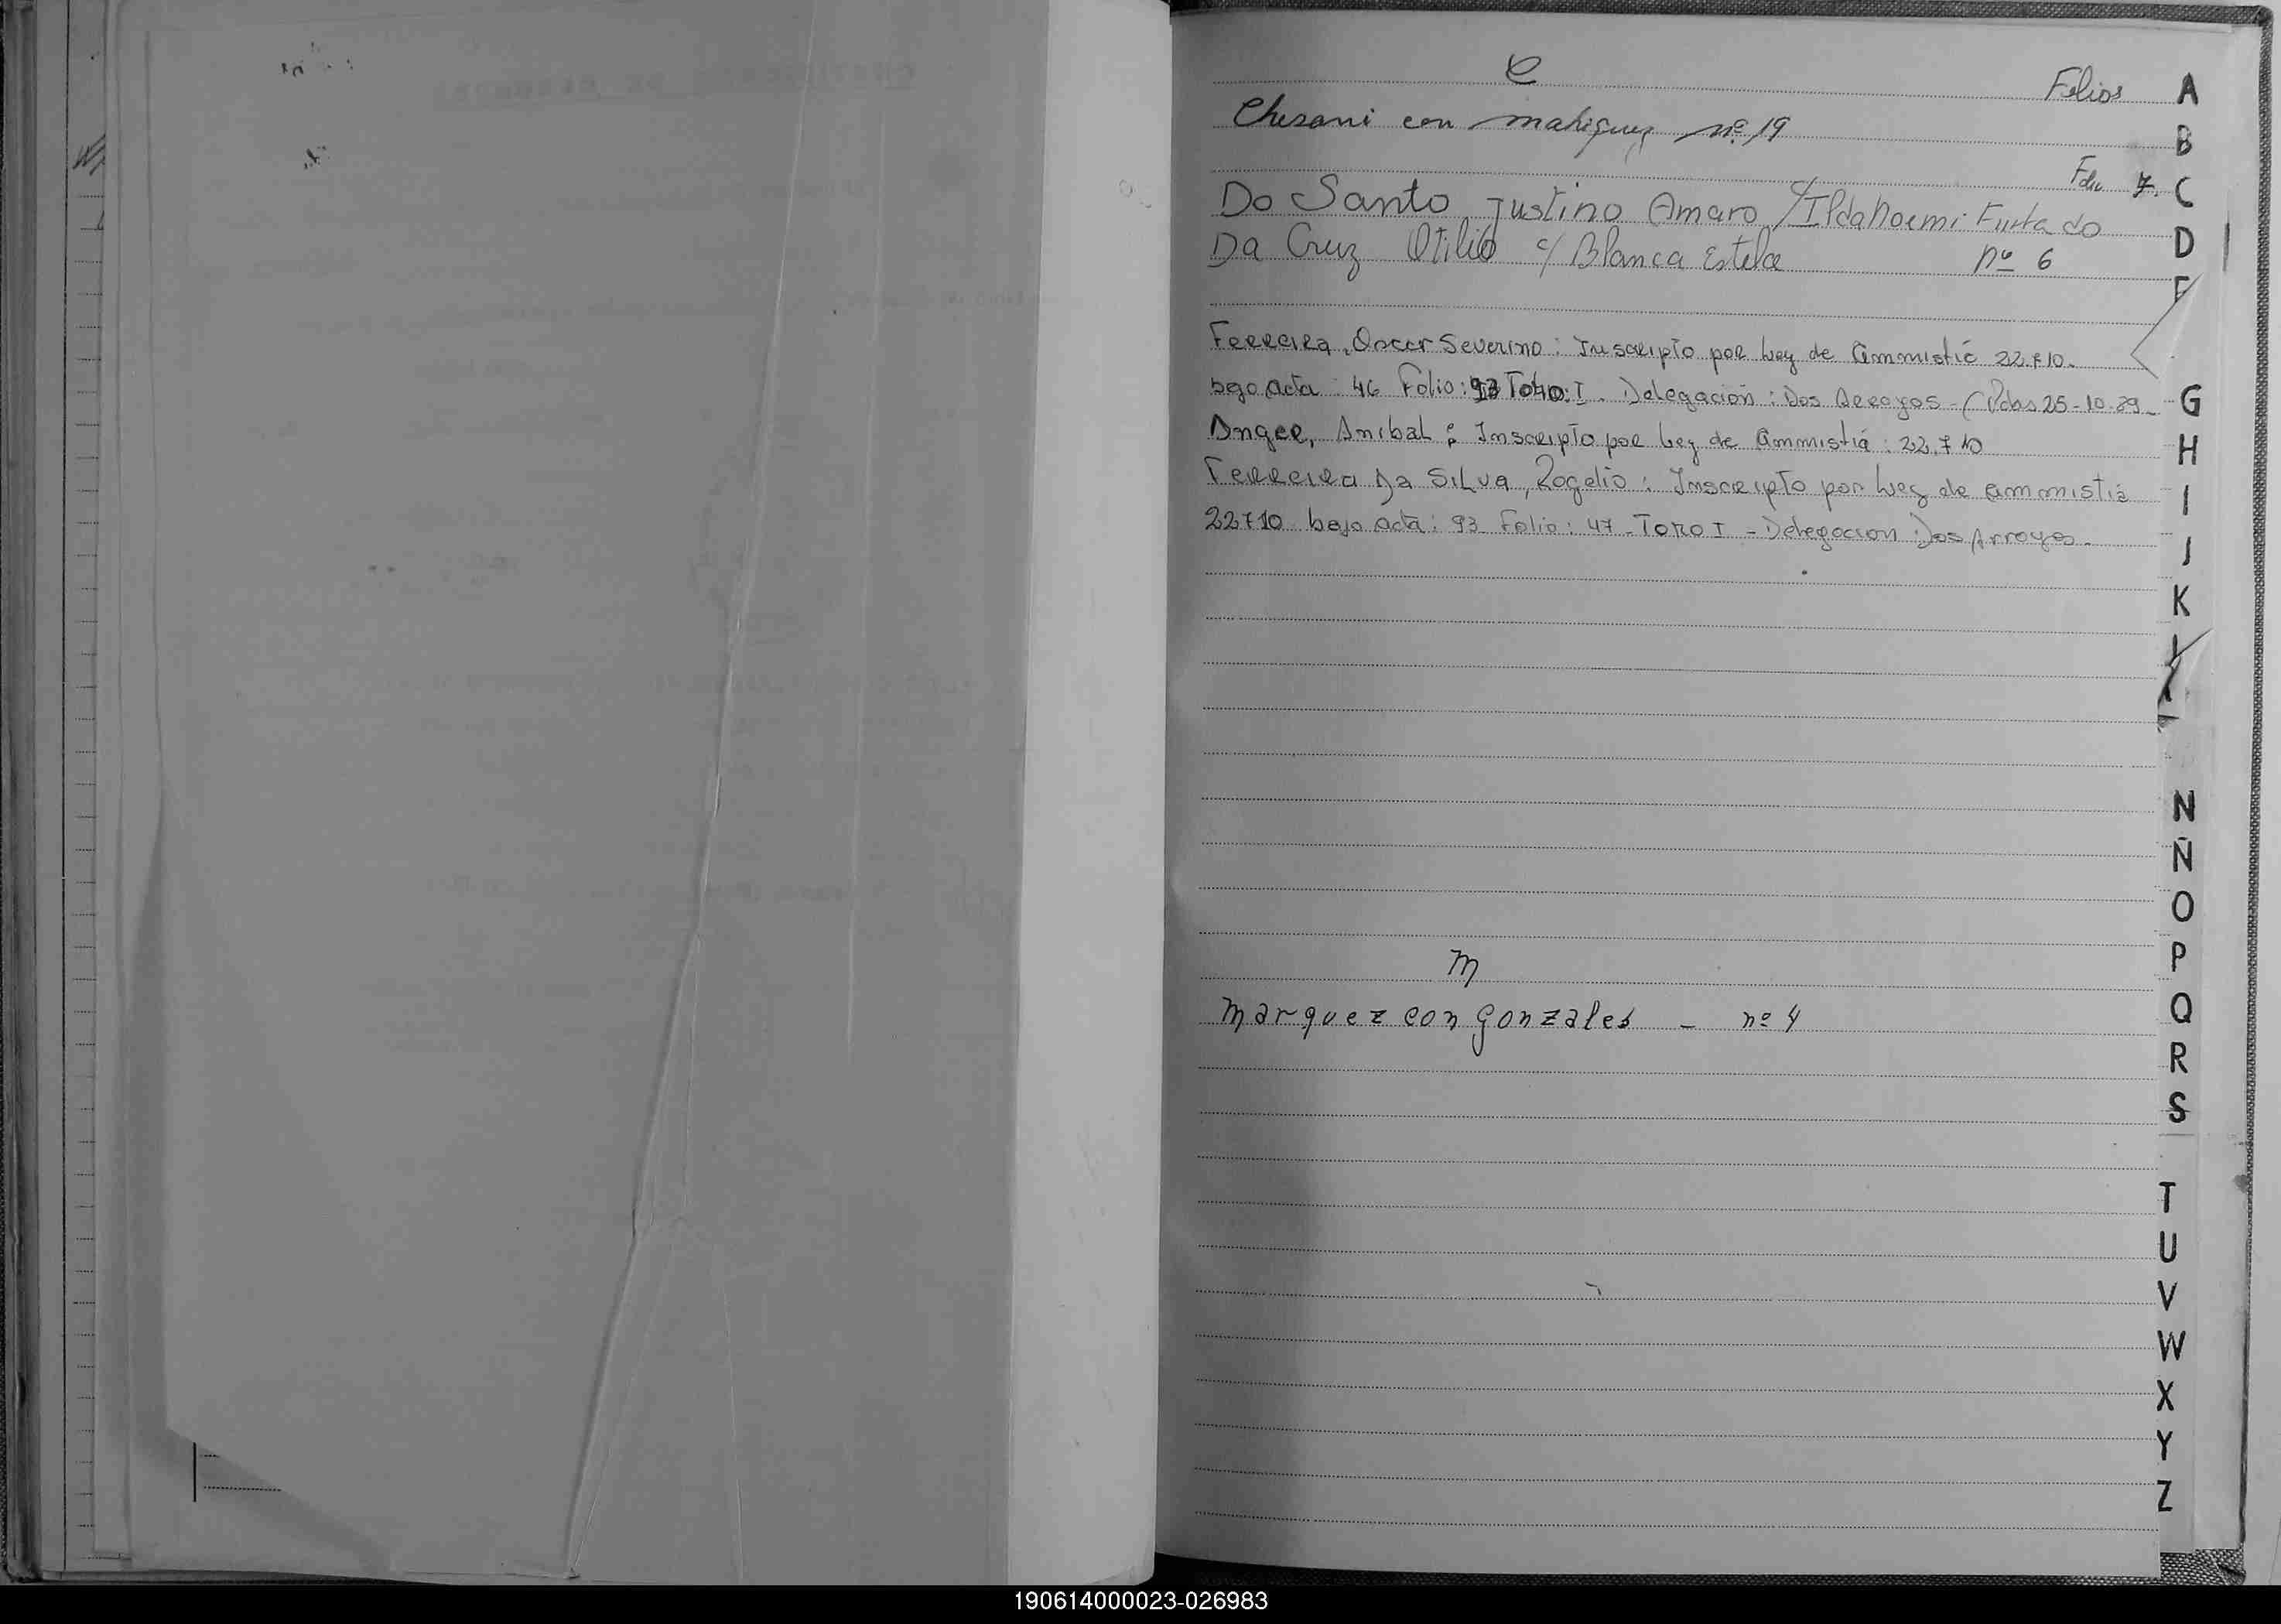 C
Folios
Chesani con mahiquez nº 19
Folio 7.
Do Santo Justino Amaro c/ Ilda Noemi Furtado
Da Cruz Otilio c/ Blanca Estela nº 6
Ferreira, Oscar Severino: Inscripto por Ley de Ammistía 22.710.
bajo acta: 46 Folio: Tomo: I. Delegación: Dos Arroyos - 25-10-89
Anger, Anibal: Inscripto por Ley de Ammistiá: 22.710
Ferreira Da Silva, Rogelio: Inscripto por Ley de ammistia
22710 bajo acta: 93 Folio: 47 - Tomo I - Delegación Dos Arroyos.
m
Marquez con Gonzales - nº 4
A
B
C
D
G
H
I
J
K
N
Ñ
O
P
Q
R
S
T
U
V
W
X
Y
Z
190614000023-026983